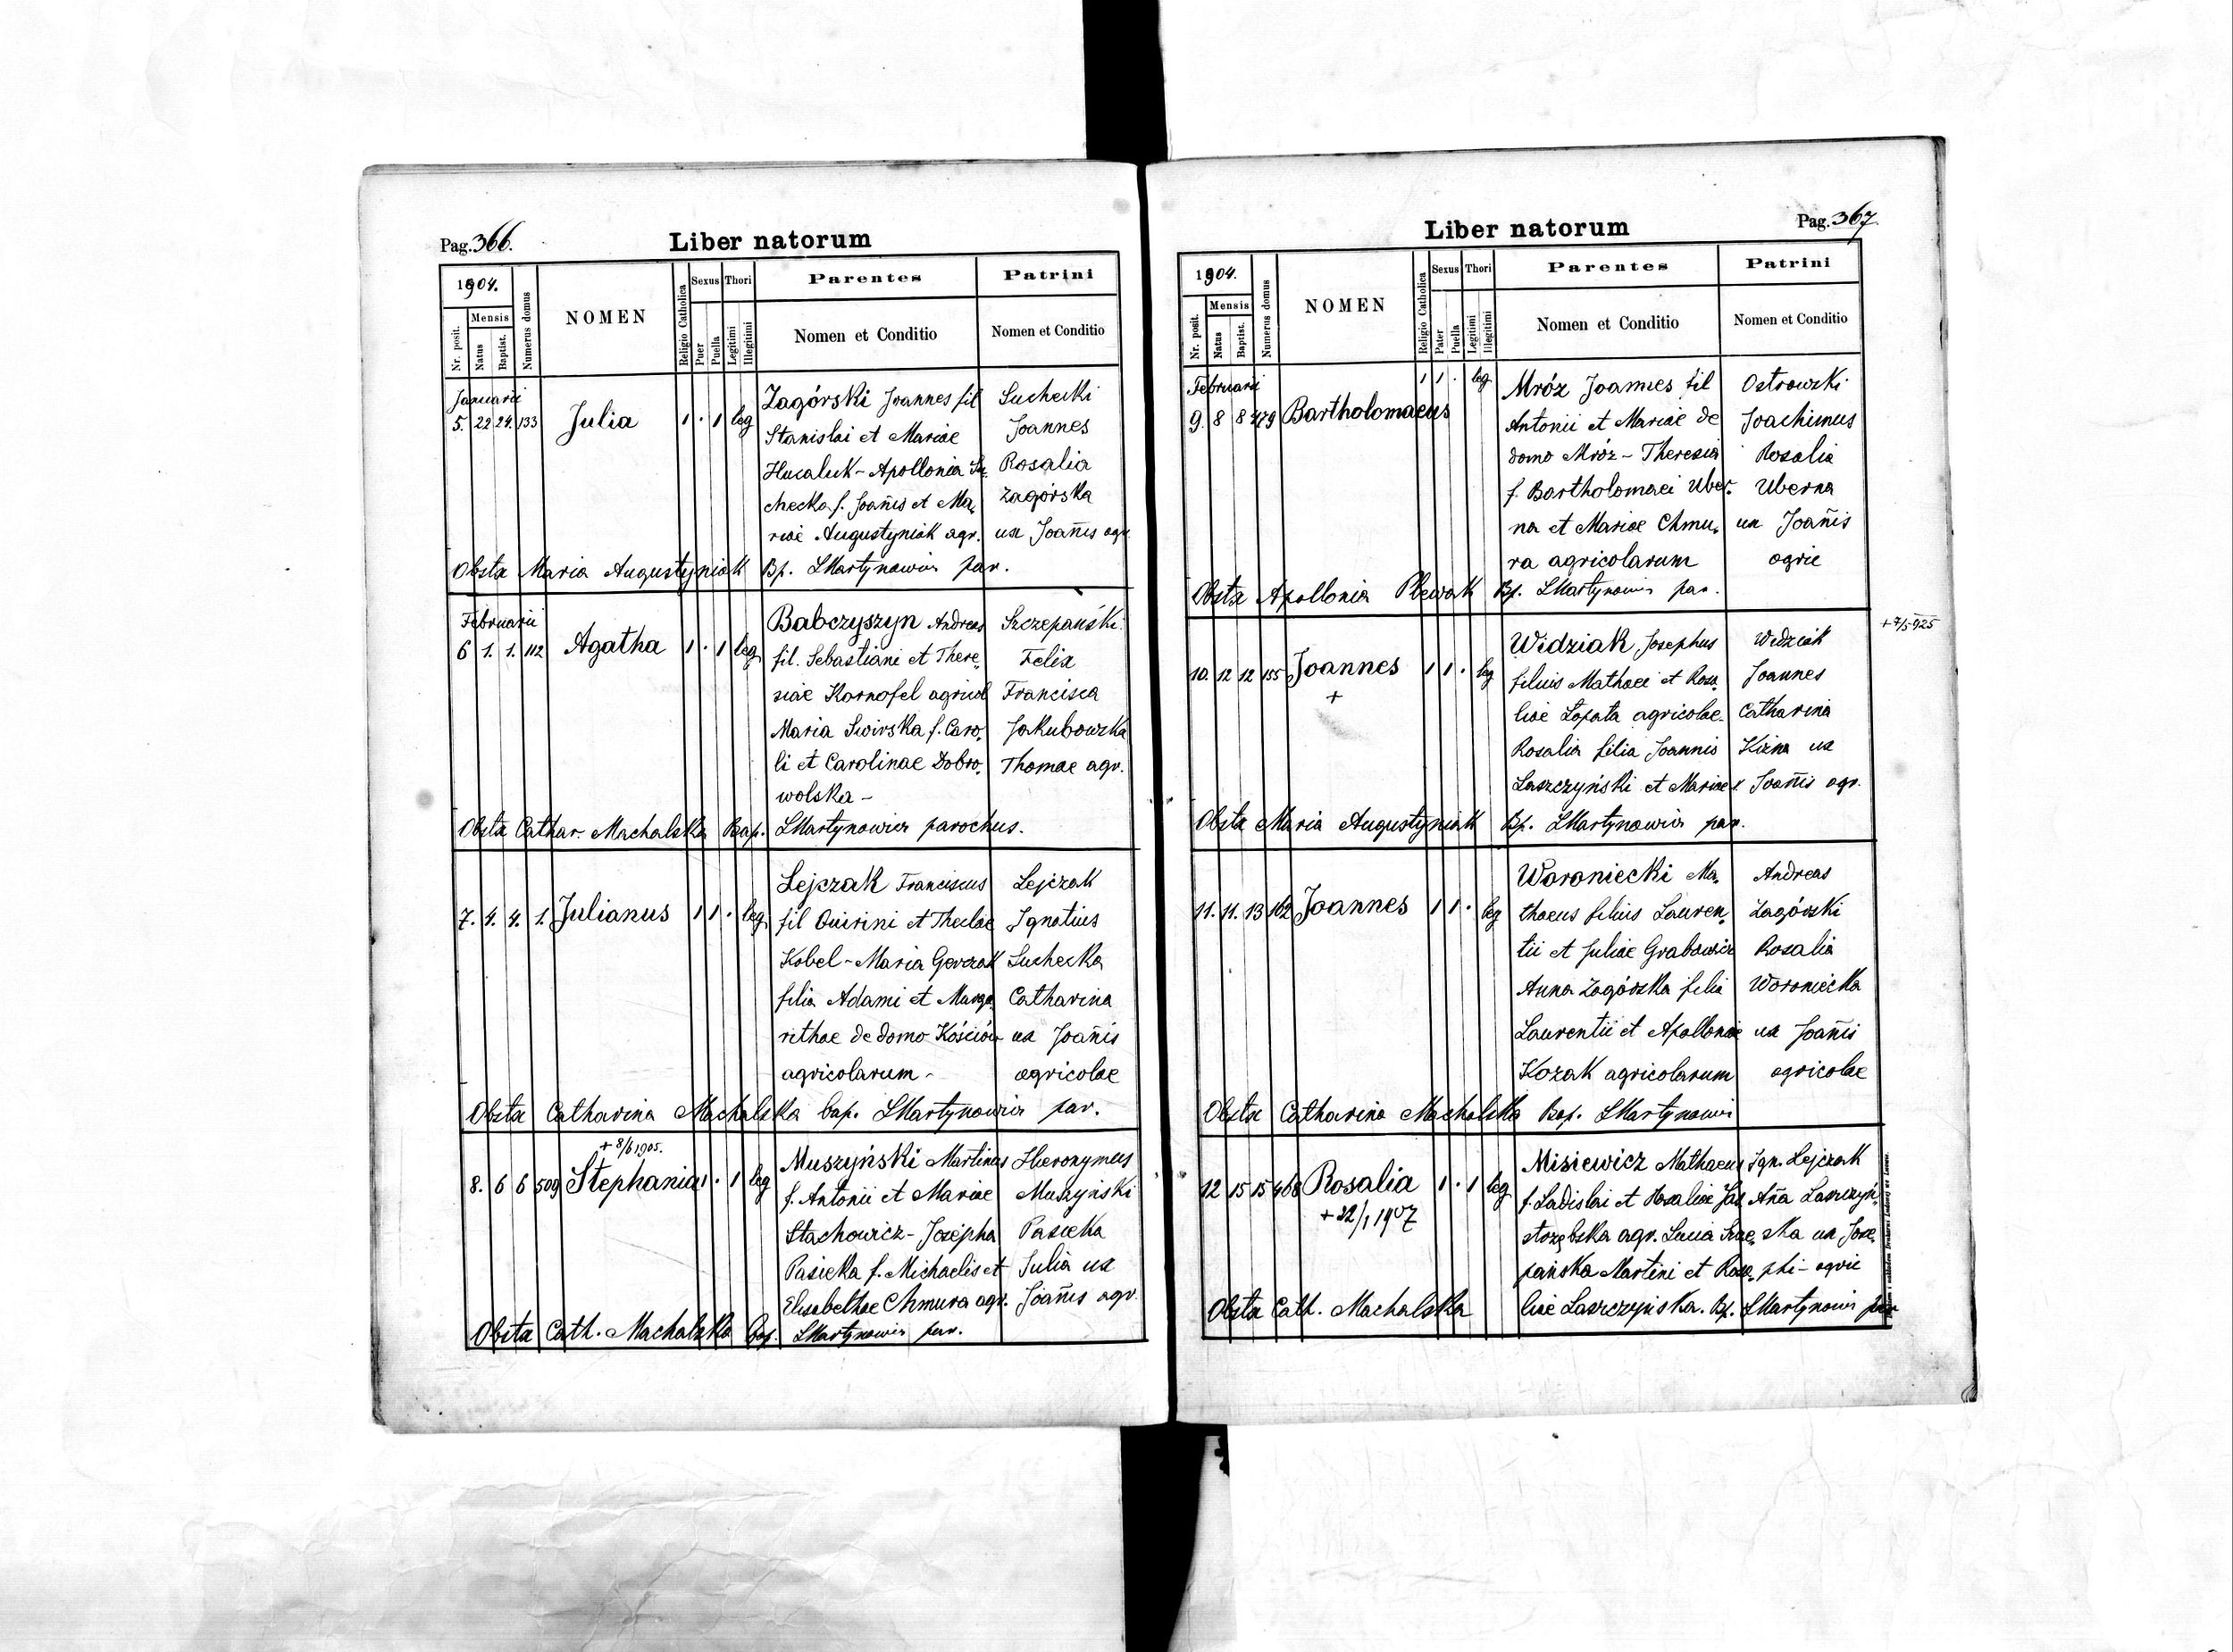 Pag. 366.
Liber natorum
1904.
Nr. posit.
Mensis
Natus
Baptist.
Numerus domus
NOMEN
Religio Catholica
Sexus
Puer
Puella
Thori
Legitimi
Illegitimi
Parentes
Nomen et Conditio
Patrini
Nomen et Conditio
Januarii
5. 22 24. 133 Julia 1 · 1 leg
Zagórski Joannes fil
Stanislai et Mariae
Hucaluk - Apollonia Su-
checka f. Joañis et Ma-
riae Augustyniak agr.
Suchecki
Joannes
Rosalia
Zagórska
ux Joañis agr.
Obstx Maria Augustyniak Bp. LMartynowicz par.
Februarii
6 1. 1. 112 Agatha 1 · 1 leg
Babczyszyn Andreas
fil. Sebastiani et There-
siae Kornafel agricol
Maria Swirska f. Caro-
li et Carolinae Dobro-
wolska -
Szczepański
Felix
Francisca
Jakubowska
Thomae agr.
Obstx Cathar. Machalska Bap. LMartynowicz parochus.
7. 4. 4. 1. Julianus 1 1 · leg
Lejczak Franciscus
fil Quirini et Theclae
Kobel - Maria Gerczak
filia Adami et Marga-
rithae de domo Kościów
agricolarum -
Lejczak
Ignatius
Suchecka
Catharina
ux Joañis
agricolae
Obstx Catharina Machalska bap. LMartynowicz par.
+ 8/6 1905.
8. 6 6 509 Stephania 1 · 1 leg
Muszyński Martinus
f. Antonii et Mariae
Stachowicz - Josepha
Pasieka f. Michaelis et
Elisabethae Chmura agr.
Hieronymus
Muszyński
Pasieka
Julia ux
Joañis agr.
Obstx Cath. Machalska bap. LMartynowicz par.
Pag. 367
Liber natorum
1904.
Nr. posit.
Mensis
Natus
Baptist.
Numerus domus
NOMEN
Religio Catholica
Sexus
Pater
Puella
Thori
Legitimi
Illegitimi
Parentes
Nomen et Conditio
Patrini
Nomen et Conditio
Februarii
9. 8 8 479 Bartholomaeus 1 1 · leg
Mróz Joannes fil
Antonii et Mariae de
domo Mróz - Theresia
f. Bartholomaei Uber-
na et Mariae Chmu-
ra agricolarum
Ostrowski
Joachimus
Rosalia
Uberna
ux Joañis
agric
Obstx Apollonia Plewak Bp. LMartynowicz par.
+ 7/5 925
10. 12 12 155 Joannes 1 1 · leg
+
Widziak Josephus
filius Mathaei et Rosa-
liae Łopata agricolae
Rosalia filia Joannis
Laszczyński et Mariae
Widziak
Joannes
Catharina
ux
Joañis agr.
Obstx Maria Augustyniak Bp. LMartynowicz par.
11. 11. 13 162 Joannes 1 1 · leg
Woroniecki Ma-
thaeus filius Lauren-
tii et Juliae Grabowicz
Anna Zagórska filia
Laurentii et Apolloniae
Kozak agricolarum
Andreas
Zagórski
Rosalia
Woroniecka
ux Joañis
agricolae
Obstx Catharina Machalska Bap. LMartynowicz
12 15 15 468 Rosalia 1 · 1 leg
+ 22/1 1907
Misiewicz Mathaeus
f. Ladislai et Rosaliae Jas-
strzębska agr. Lucia Szcze-
pańska Martini et Rosa-
liae Laszczyńska. Bp. LMartynowicz par
Ign. Lejczak
Aña Laszczyń-
ska ux Jose-
phi - agric
Obstx Cath. Machalska